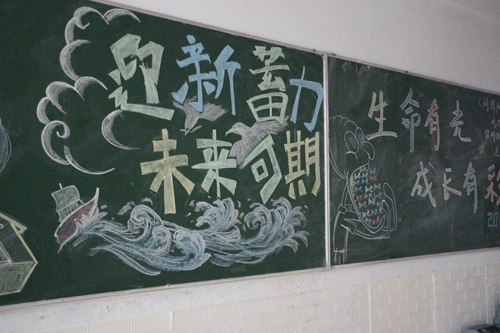 迎新蓄力
未来可期
生命有
成长有彩